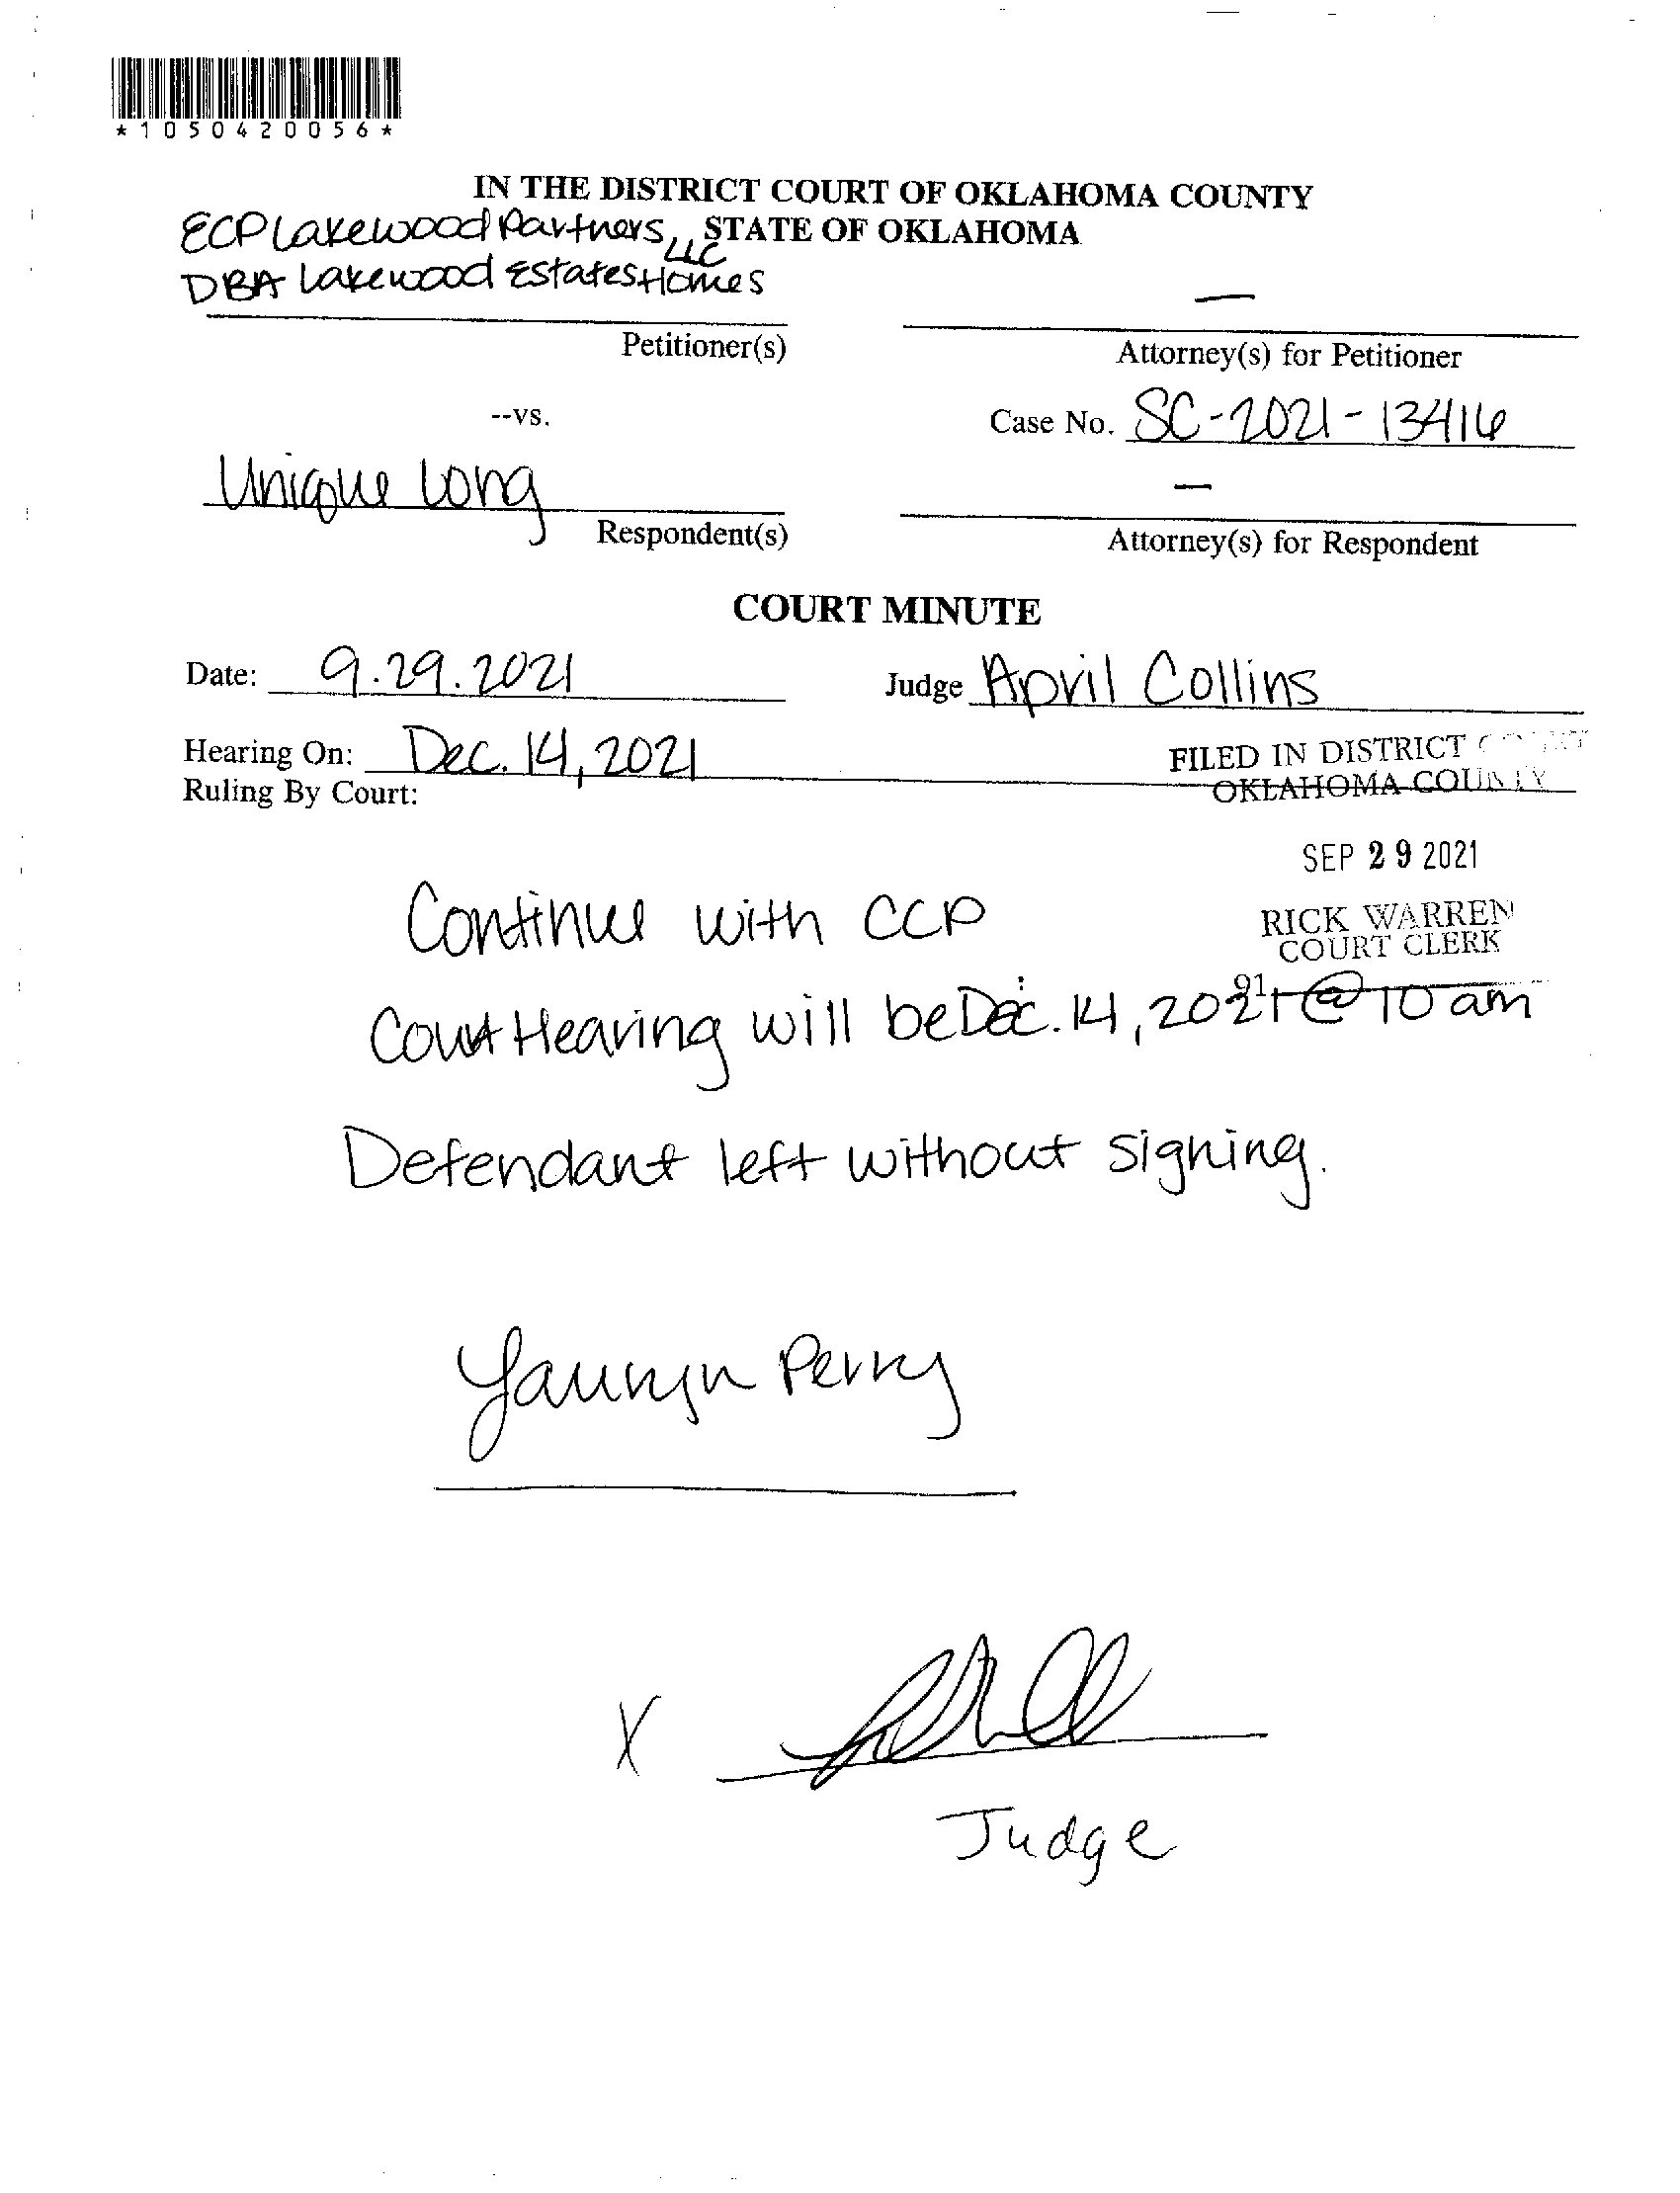 *1050420056*
IN THE DISTRICT COURT OF OKLAHOMA COUNTY
STATE OF OKLAHOMA
ECP Lakewood Partners, LLC
DBA Lakewood Estates Homes
Petitioner(s)
Attorney(s) for Petitioner
--vs.
Case No. SC-2021-13416
Unique Long
Respondent(s)
Attorney(s) for Respondent
COURT MINUTE
Date: 9.29.2021
Judge April Collins
Hearing On: Dec. 14, 2021
Ruling By Court:
FILED IN DISTRICT COURT
OKLAHOMA COUNTY
SEP 29 2021
RICK WARREN
COURT CLERK
91
Continue with CCP
Court Hearing will be Dec. 14, 2021 @ 10 am
Defendant left without signing.
Perry
X
Judge